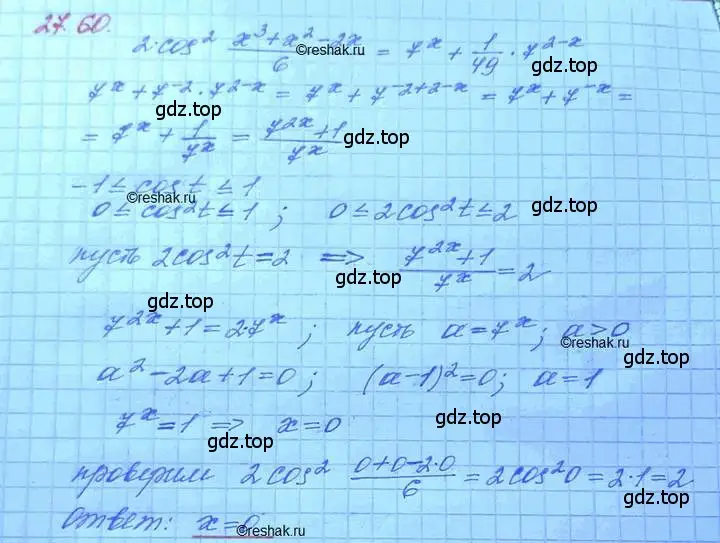 27.60.
2·cos² (x³+x²-2x)/6 = 7ˣ + 1/49 · 7²⁻ˣ
©reshak.ru
gdz.top
7ˣ + 7⁻² · 7²⁻ˣ = 7ˣ + 7⁻²⁺²⁻ˣ = 7ˣ + 7⁻ˣ =
gdz.top
gdz.top
= 7ˣ + 1/7ˣ = (7²ˣ+1)/7ˣ
gdz.top
-1 ≤ cos t ≤ 1
©reshak.ru
0 ≤ cos²t ≤ 1 ; 0 ≤ 2cos²t ≤ 2
gdz.top
©reshak.ru
пусть 2cos²t = 2 => (7²ˣ+1)/7ˣ = 2
gdz.top
gdz.top
7²ˣ + 1 = 2·7ˣ ; пусть a = 7ˣ ; a > 0
©reshak.ru
gdz.top
a² - 2a + 1 = 0 ; (a-1)² = 0 ; a = 1
7ˣ = 1 => x = 0
gdz.top
gdz.top
проверим 2cos² (0+0-2·0)/6 = 2cos²0 = 2·1 = 2
gdz.top
ответ: x = 0.
©reshak.ru
gdz.top